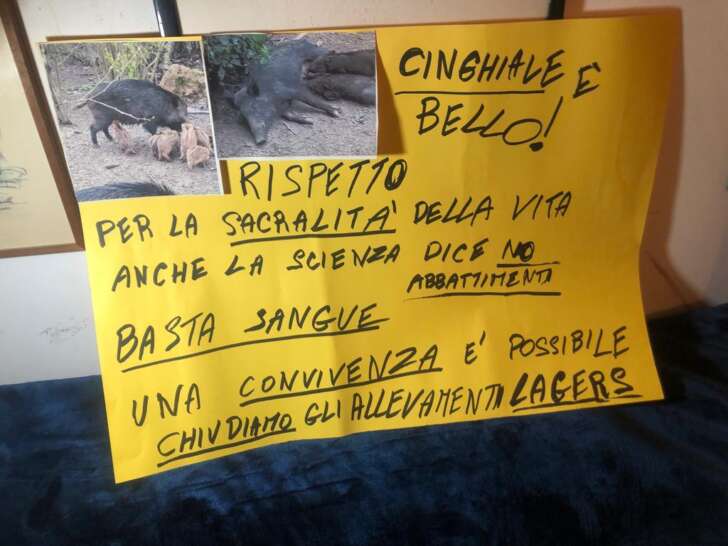 CINGHIALE È
BELLO!
RISPETTO
PER LA SACRALITA' DELLA VITA
ANCHE LA SCIENZA DICE NO
ABBATTIMENTI
BASTA SANGUE
UNA CONVIVENZA E' POSSIBILE
CHIUDIAMO GLI ALLEVAMENTI LAGERS